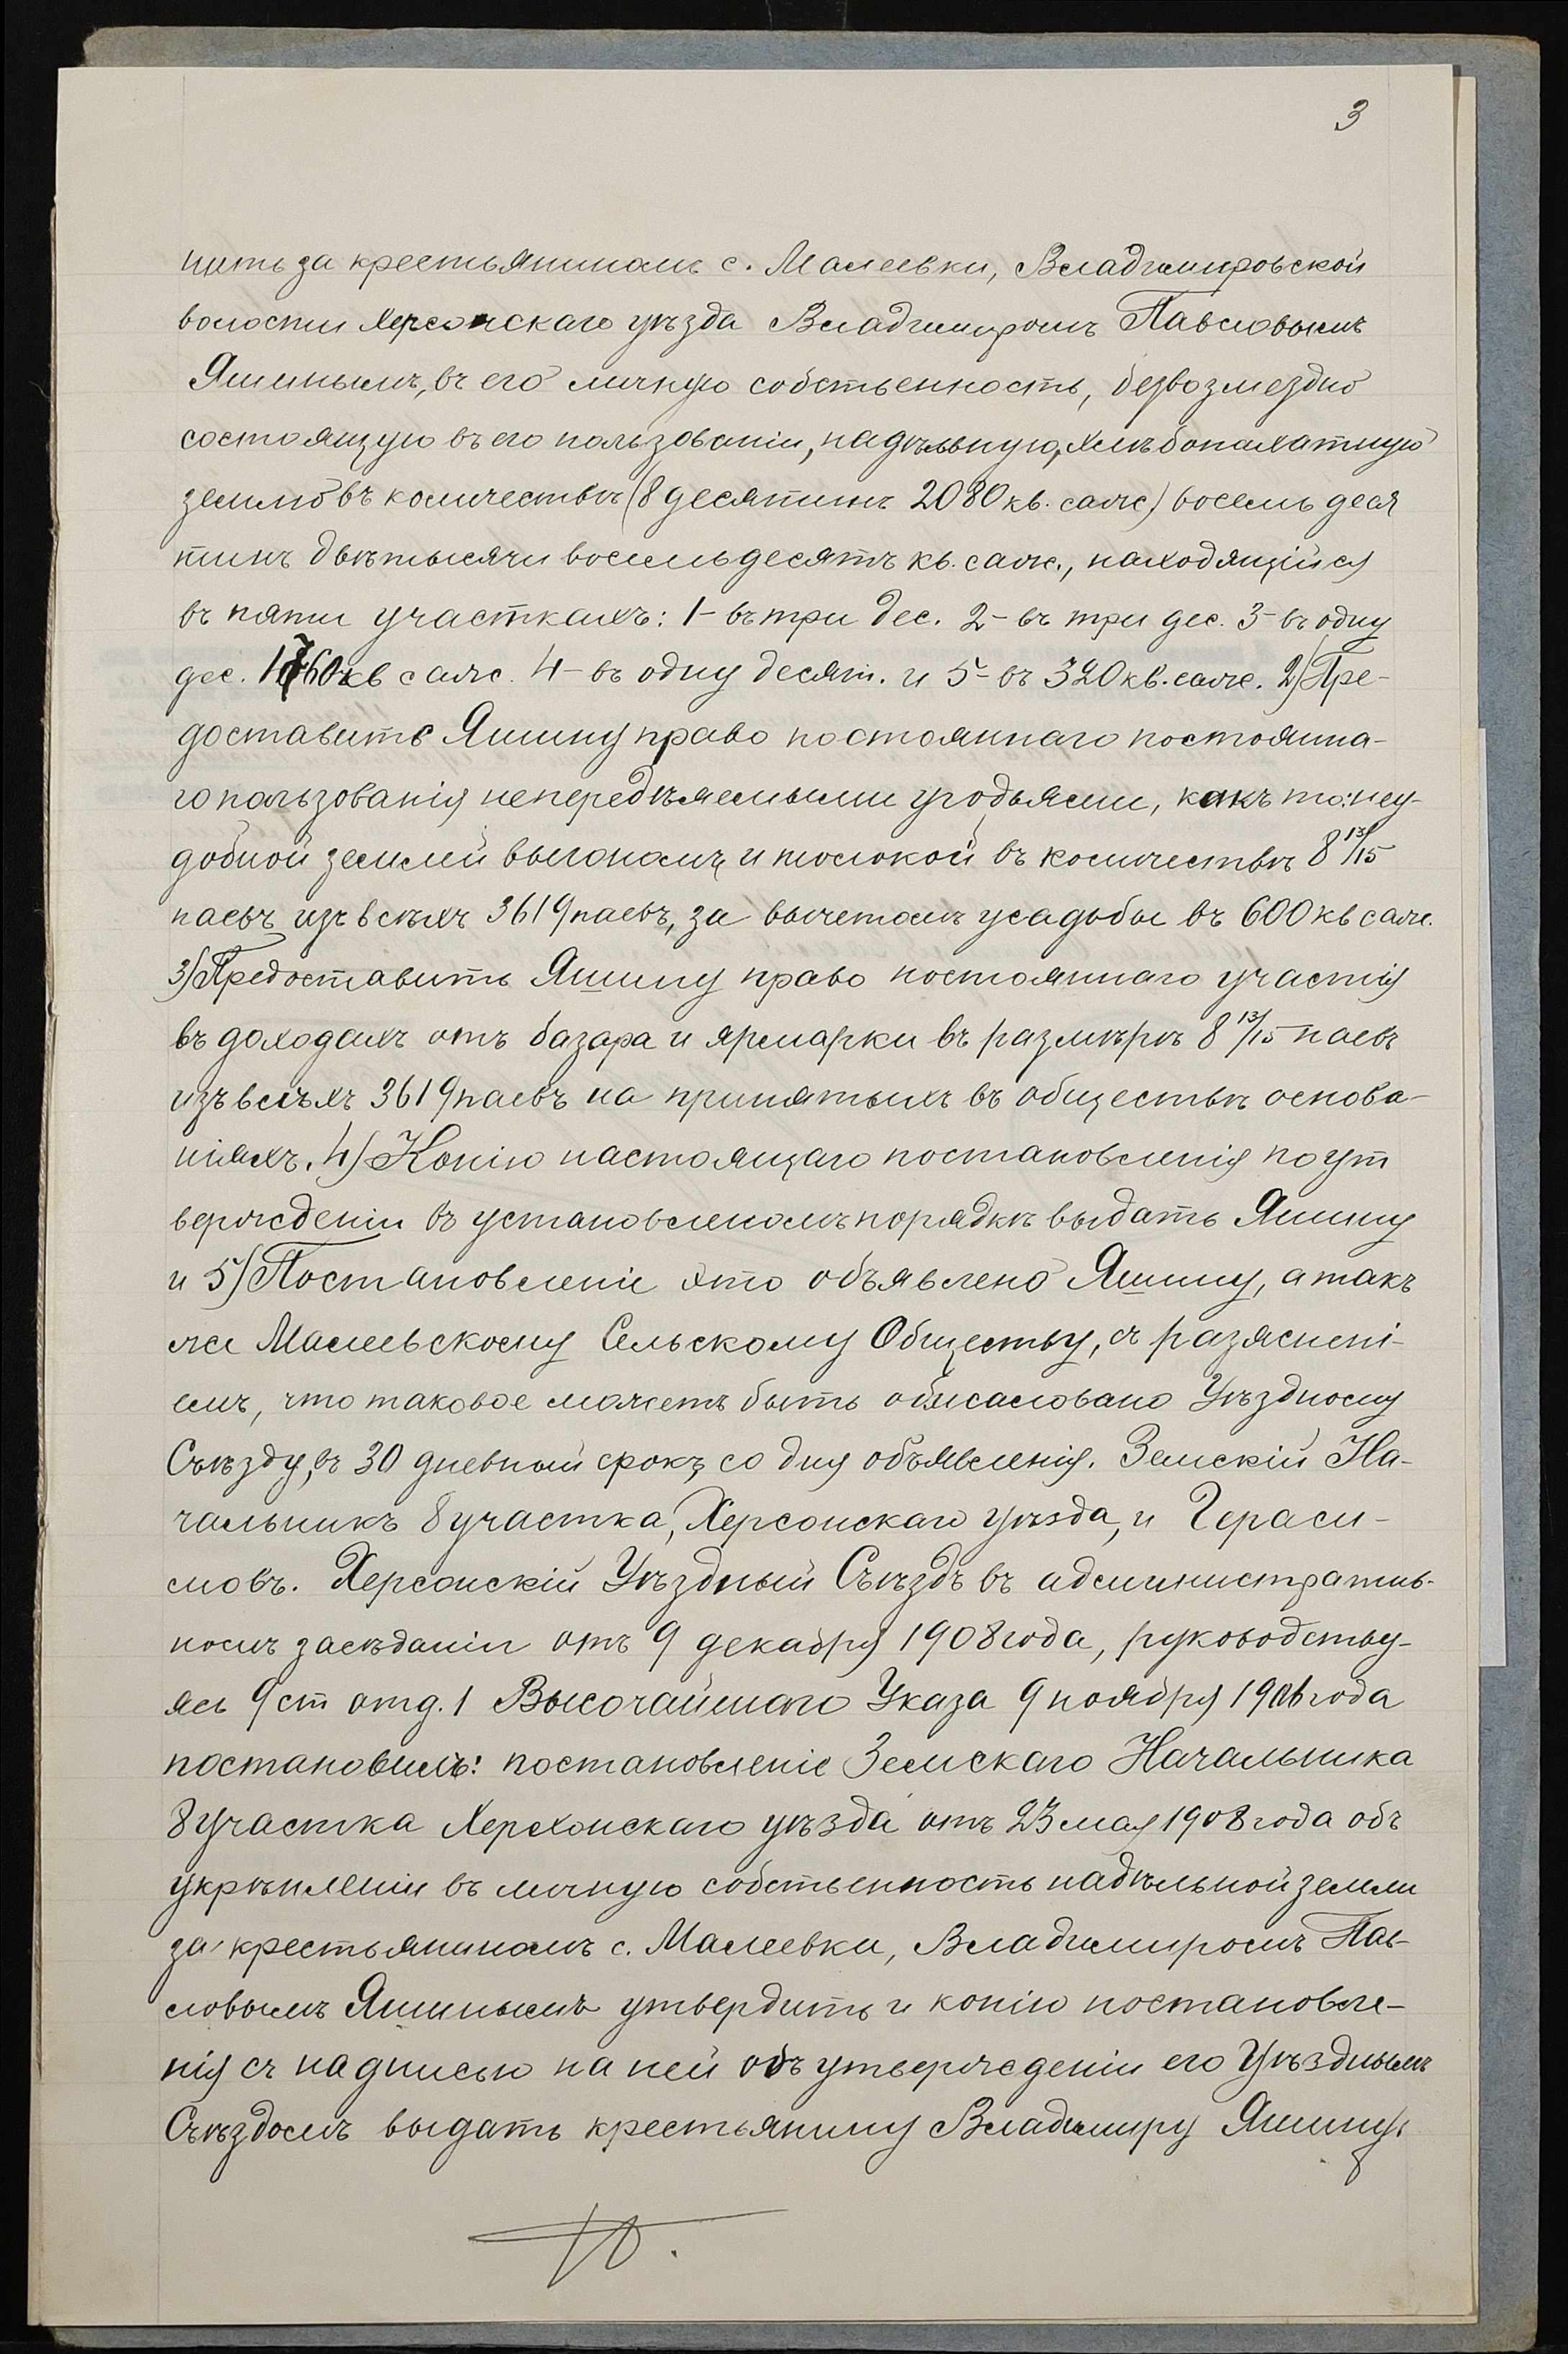 3
пить за крестьяниномъ с. Малеевки, Владимировской
волости Херсонскаго уѣзда Владимиромъ Павловымъ
Яшинымъ, въ его личную собственность, безвозмездно
состоящую въ его пользованіи, надѣльную, хлѣбопахатную
землю въ количествѣ (8 десятинъ 2080 кв. саж) восемь деся
тинъ двѣ тысячи восемьдесятъ кв. саж., находящійся
въ пяти участкахъ: 1-въ три дес. 2-въ три дес. 3-въ одну
дес. 1760 кв саж. 4-въ одну десят. и 5-въ 320 кв. саж. 2) Пре-
доставить Яшину право постояннаго постоянна-
го пользованія непередѣляемыми угодьями, какъ то: неу-
добной землей выгономъ и толокой въ количествѣ 8 13/15
паевъ изъ всѣхъ 3619 паевъ, за вычетомъ усадьбы въ 600 кв саж.
3) Предоставить Яшину право постояннаго участія
въ доходахъ отъ базара и ярмарки въ размѣрѣ 8 13/15 паевъ
изъ всѣхъ 3619 паевъ на принятыхъ въ обществѣ основа-
ніяхъ. 4) Копію настоящаго постановленія по ут
вержденіи въ установленомъ порядкѣ выдать Яшину
и 5) Постановленіе это объявлено Яшину, а такъ
же Малеевскому Сельскому Обществу, съ разяснені-
емъ, что таковое можетъ быть обжаловано Уѣздному
Съѣзду, въ 30 дневный срокъ со дня объявленія. Земскій На-
чальникъ 8 участка, Херсонскаго уѣзда, и Гераси-
мовъ. Херсонскій Уѣздный Съѣздъ въ административ-
номъ засѣданіи отъ 9 декабря 1908 года, руководству-
ясь 9 ст отд. 1 Высочайшаго Указа 9 ноября 1906 года
постановилъ: постановленіе Земскаго Начальника
8 участка Херсонскаго уѣзда отъ 23 мая 1908 года объ
укрѣпленіи въ личную собственность надѣльной земли
за крестьяниномъ с. Малеевки, Владимиромъ Пав-
ловымъ Яшинымъ утвердить и копію постановле-
нія съ надписью на ней объ утвержденіи его Уѣзднымъ
Съѣздомъ выдать крестьянину Владимиру Яшину.